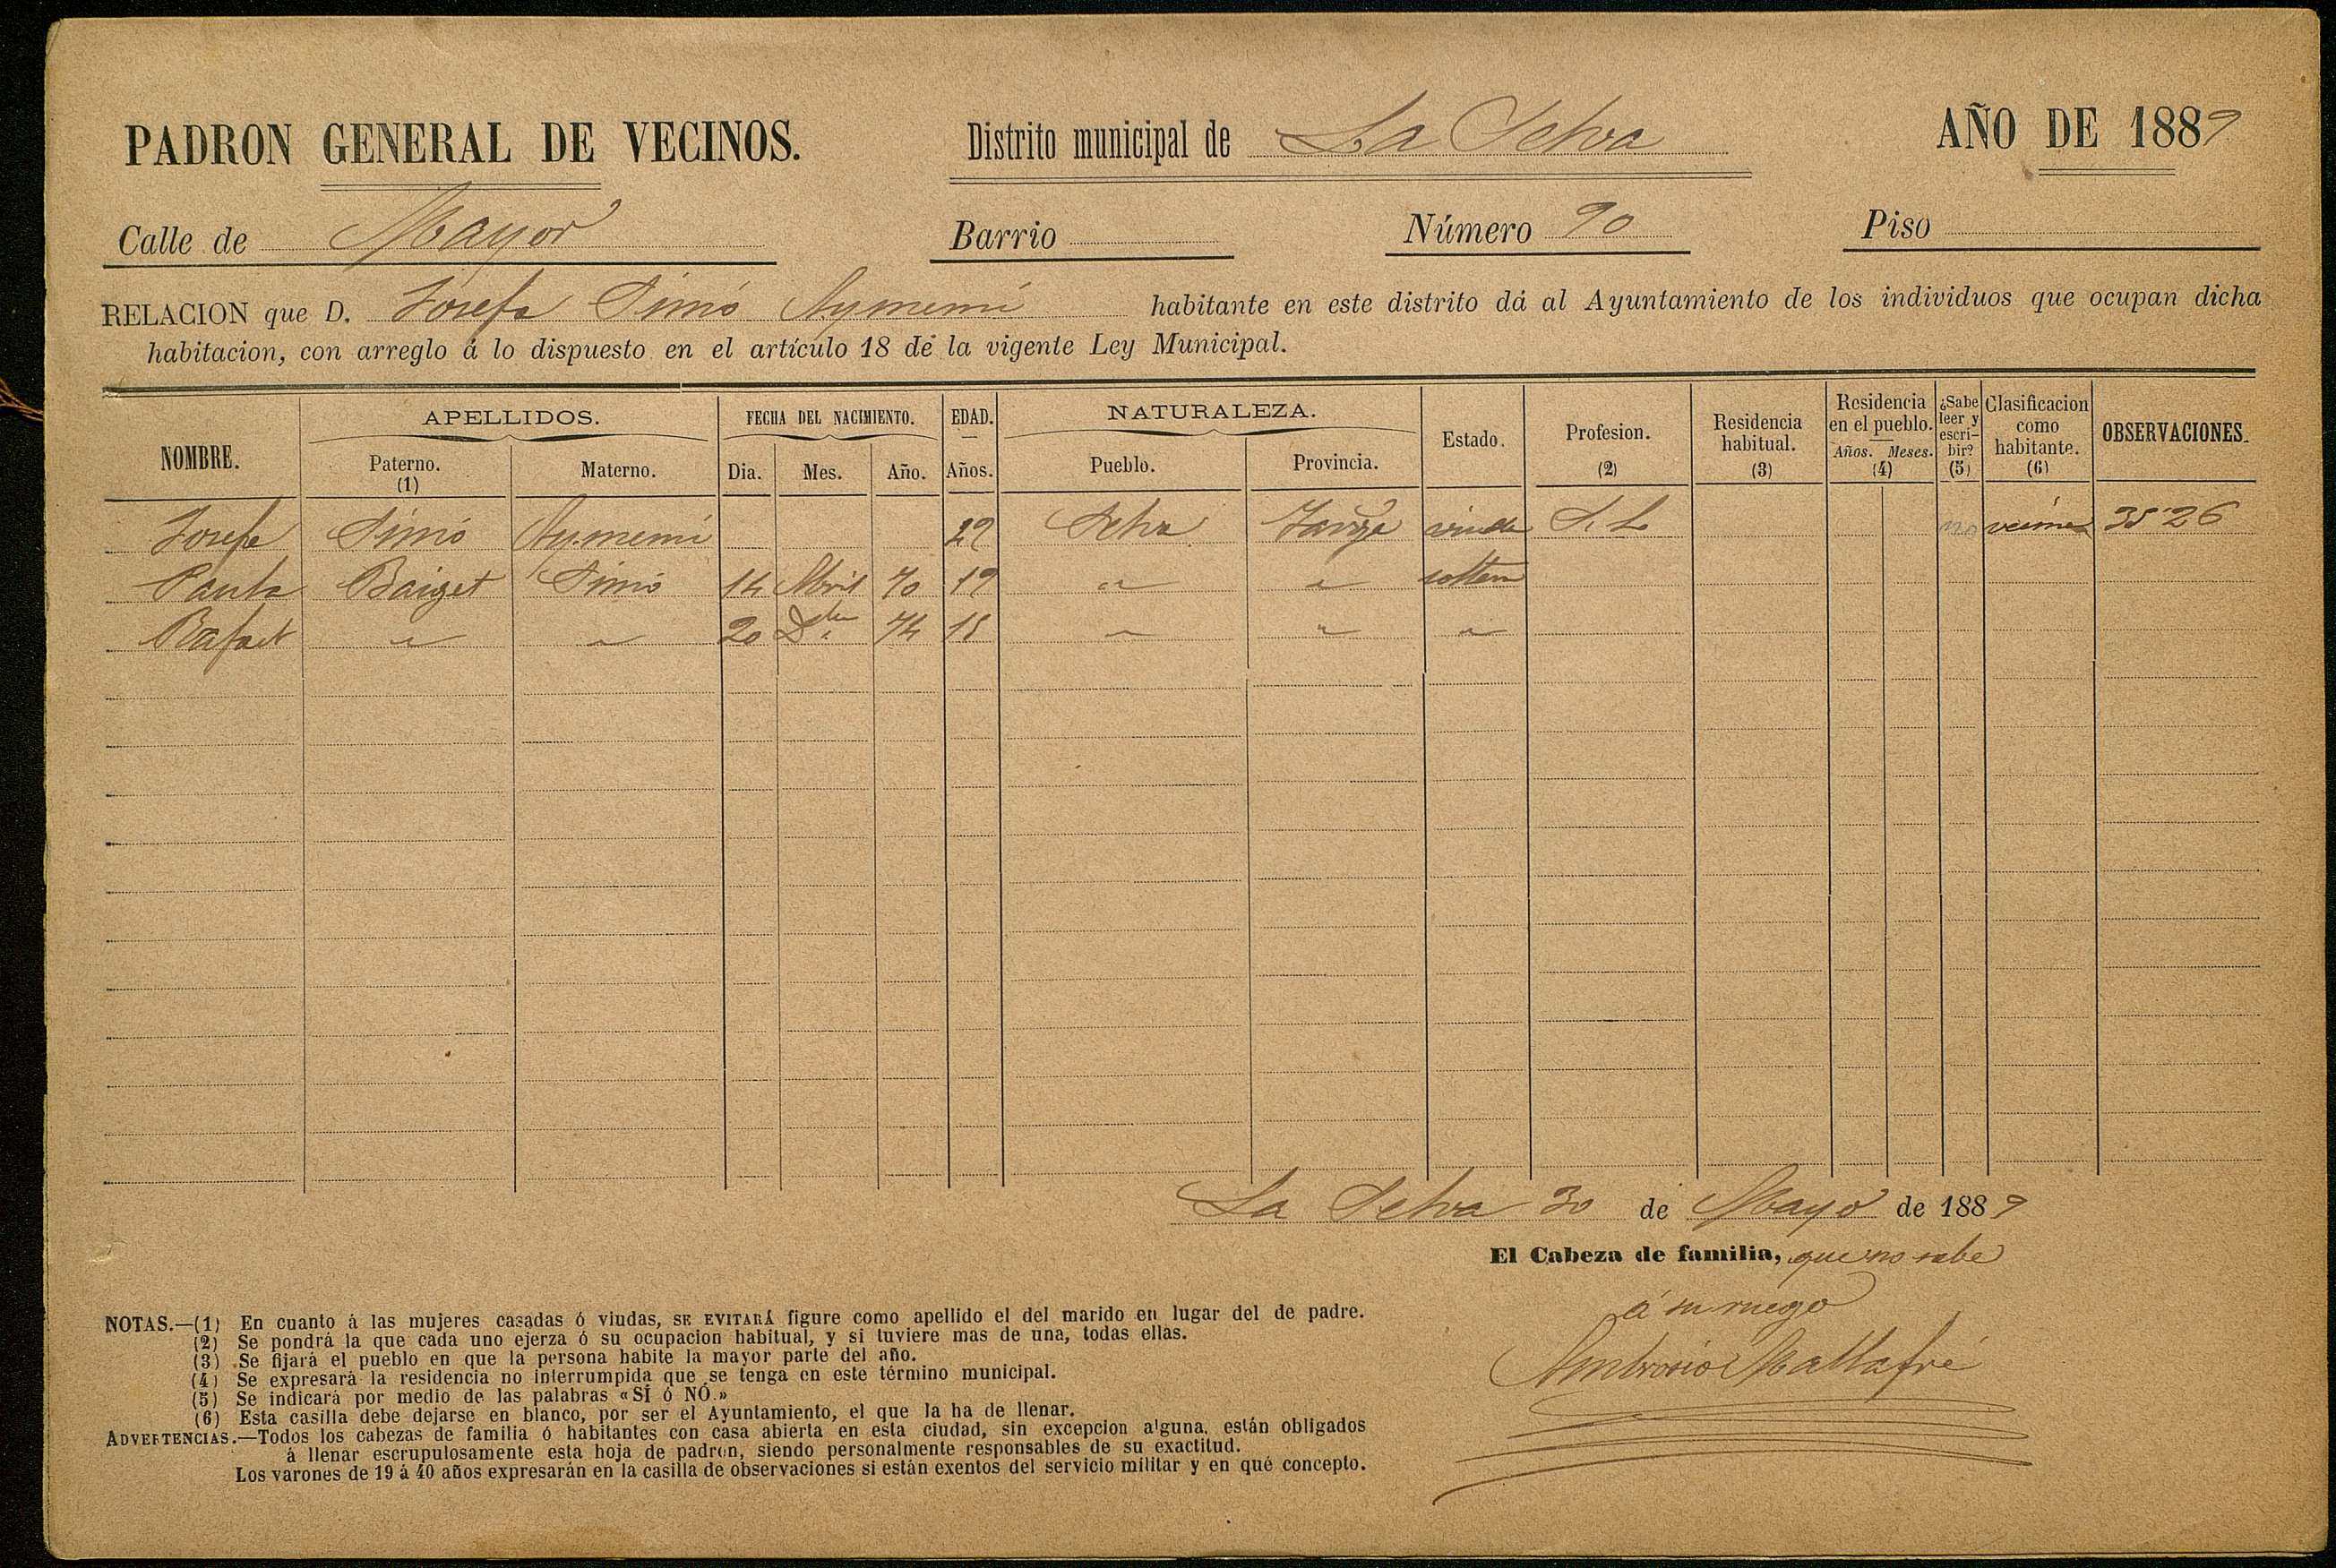 PADRON GENERAL DE VECINOS. Distrito municipal de La Selva AÑO DE 1889
Calle de Mayor Barrio Número 90 Piso
RELACION que D. Josefa Simó Aymemí habitante en este distrito dá al Ayuntamiento de los individuos que ocupan dicha
habitacion, con arreglo á lo dispuesto en el artículo 18 de la vigente Ley Municipal.
NOMBRE. APELLIDOS. FECHA DEL NACIMIENTO. EDAD. NATURALEZA. Estado. Profesion. (2) Residencia habitual. (3) Residencia en el pueblo. ¿Sabe leer y escribir? (5) Clasificacion como habitante. (6) OBSERVACIONES.
Paterno. (1) Materno. Dia. Mes. Año. Años. Pueblo. Provincia. Años. Meses. (4)
Josefa Simó Aymemí Selva viuda S. L. no vecina 3526
Paula Baiget Simó 14 Abril 70 19 " " soltera
Rafael " " 20 Dbre 74 " " "
La Selva 30 de Mayo de 1889
El Cabeza de familia, que no sabe
á su ruego
Ambrosio Mallafré
NOTAS.—(1) En cuanto á las mujeres casadas ó viudas, SE EVITARÁ figure como apellido el del marido en lugar del de padre.
(2) Se pondrá la que cada uno ejerza ó su ocupacion habitual, y si tuviere mas de una, todas ellas.
(3) Se fijará el pueblo en que la persona habite la mayor parte del año.
(4) Se expresará la residencia no interrumpida que se tenga en este término municipal.
(5) Se indicará por medio de las palabras «SÍ ó NÓ.»
(6) Esta casilla debe dejarse en blanco, por ser el Ayuntamiento, el que la ha de llenar.
ADVERTENCIAS.—Todos los cabezas de familia ó habitantes con casa abierta en esta ciudad, sin excepcion alguna, están obligados
á llenar escrupulosamente esta hoja de padron, siendo personalmente responsables de su exactitud.
Los varones de 19 á 40 años expresarán en la casilla de observaciones si están exentos del servicio militar y en qué concepto.